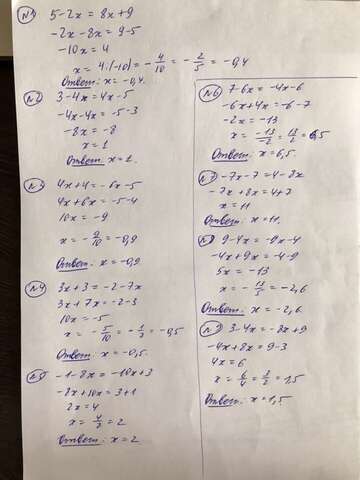 №1 5-2x = 8x+9
-2x-8x = 9-5
-10x = 4
x = 4:(-10) = -4/10 = -2/5 = -0,4
Ответ: x = -0,4.
№2 3-4x = 4x-5
-4x-4x = -5-3
-8x = -8
x = 1
Ответ: x = 1.
№3 4x+4 = -6x-5
4x+6x = -5-4
10x = -9
x = -9/10 = -0,9
Ответ: x = -0,9
№4 3x+3 = -2-7x
3x+7x = -2-3
10x = -5
x = -5/10 = -1/2 = -0,5
Ответ: x = -0,5.
№5 -1-8x = -10x+3
-8x+10x = 3+1
2x = 4
x = 4/2 = 2
Ответ: x = 2
№6 7-6x = -4x-6
-6x+4x = -6-7
-2x = -13
x = -13/-2 = 13/2 = 6,5
Ответ: x = 6,5.
№7 -7x-7 = 4-8x
-7x+8x = 4+7
x = 11
Ответ: x = 11.
№8 9-4x = -9x-4
-4x+9x = -4-9
5x = -13
x = -13/5 = -2,6
Ответ: x = -2,6.
№9 3-4x = -8x+9
-4x+8x = 9-3
4x = 6
x = 6/4 = 3/2 = 1,5
Ответ: x = 1,5.